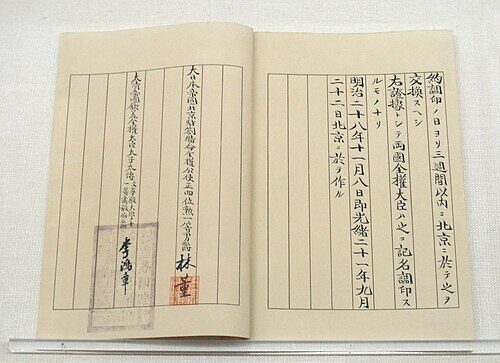 約調印ノ日ヨリ三週間以内ニ北京ニ於テ之ヲ
交換スヘシ
右證據トシテ両國全權大臣ハ之ニ記名調印ス
ルモノナリ
明治二十八年十一月八日即光緒二十一年九月
二十二日北京ニ於テ作ル
大日本帝國北京駐劄特命全權公使正四位勲一等男爵 林董
大清帝國欽差全權大臣太子太傅文華殿大學士
一等肅毅伯
李鴻章